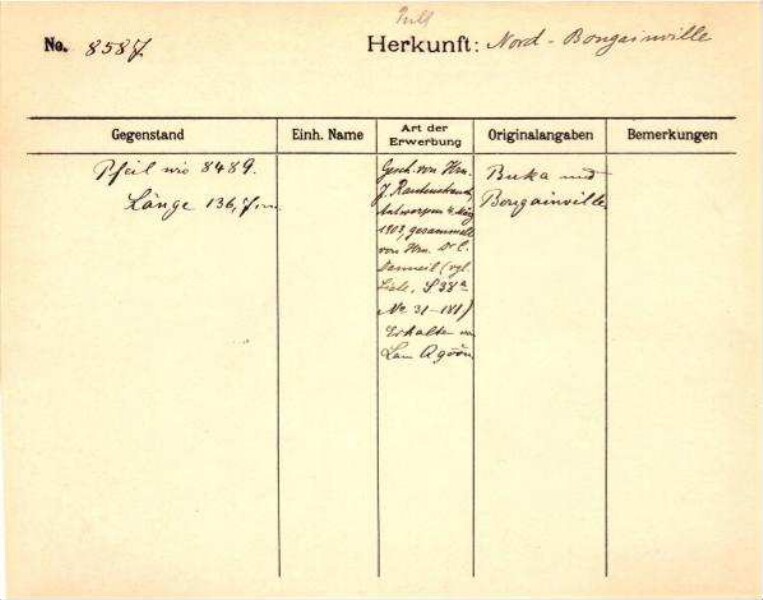 No. 8587
Herkunft: Nord - Bougainville
Gegenstand
Einh. Name
Art der Erwerbung
Originalangaben
Bemerkungen
Pfeil wie 8489.
Länge 136,7 cm.
Gesch. von Hrn.
J. Rautenstrauch,
Antwerpen 4. März
1903, gesammelt
von Hrn. Dr C.
(vgl.
Liste, S 38a
No 31-181)
Erhalten von
Lau
Buka und
Bougainville